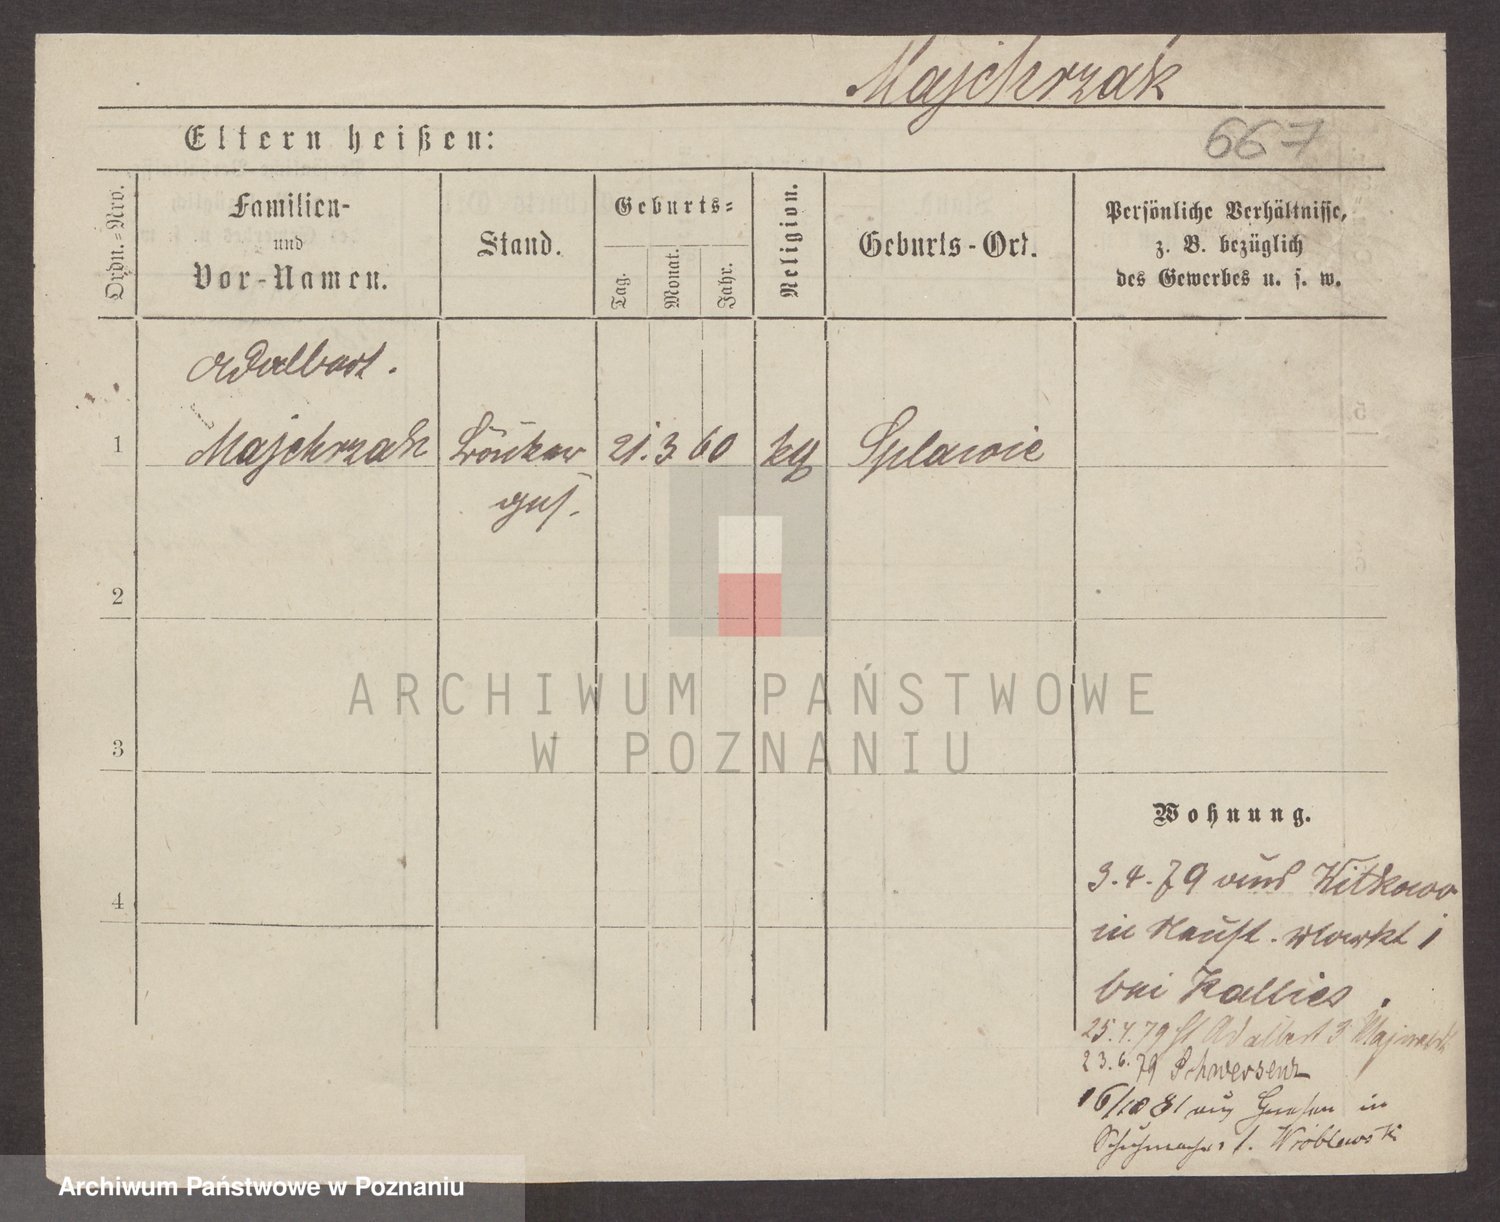 Majchrzak
Eltern heißen:
667
Ordn.=Nro.
Familien-
und
Vor-Namen.
Stand.
Geburts=
Tag.
Monat.
Jahr.
Religion.
Geburts-Ort.
Persönliche Verhältnisse,
z. B. bezüglich
des Gewerbes u. s. w.
Adalbert.
1 Majchrzak 21. 3. 60 kg Splawie
2
3
ARCHIWUM PAŃSTWOWE
W POZNANIU
4
Wohnung.
3. 4. 79 aus Witkowo
in Neust. Markt 1
bei Kallies.
25. 4. 79 St Adalbert 3
23. 6. 79 Schwersenz
16/10 81 aus Gnesen in
Schuhmacher 1. Wroblewski
Archiwum Państwowe w Poznaniu